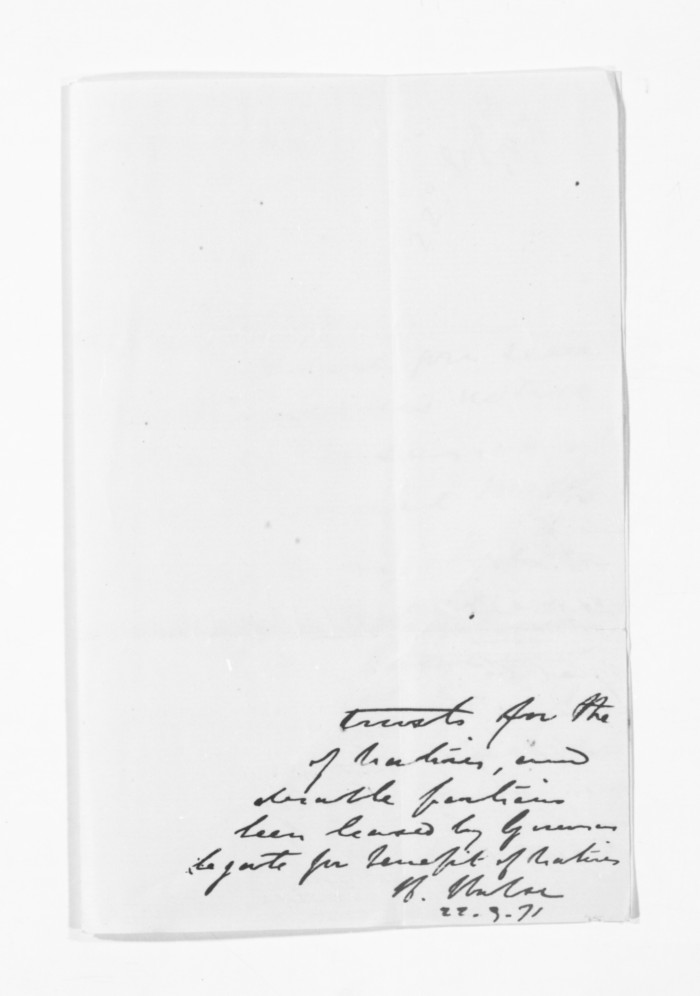 trusts for the
of Natives, and
derable portions
been leased by Governor
legate for benefit of Natives
H.
22.3.71